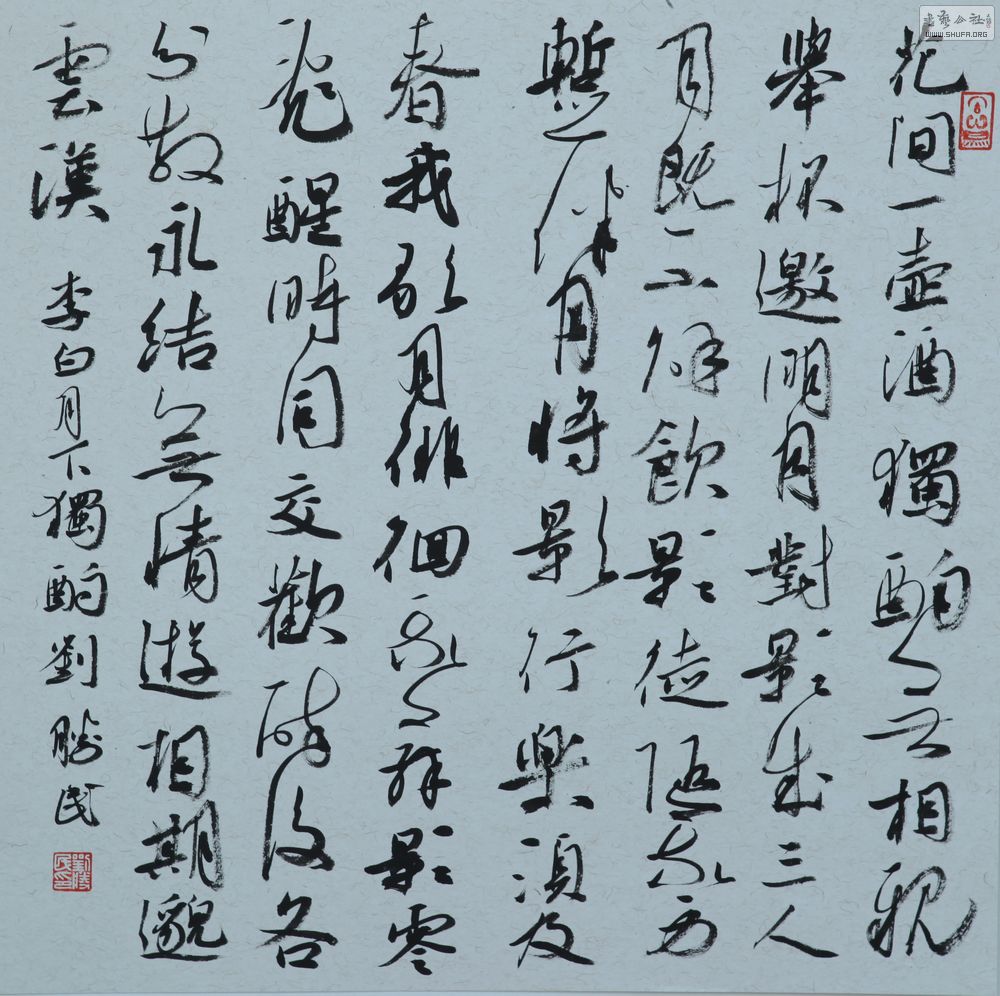 花間一壺酒獨酌無相親
舉杯邀明月對影成三人
月既不解飲影徒隨我身
暫伴月將影行樂須及
春我歌月徘徊我舞影零
亂醒時同交歡醉後各
分散永結無情遊相期邈
雲漢 李白月下獨酌劉勝民
劉勝民印
WWW.SHUFA.ORG